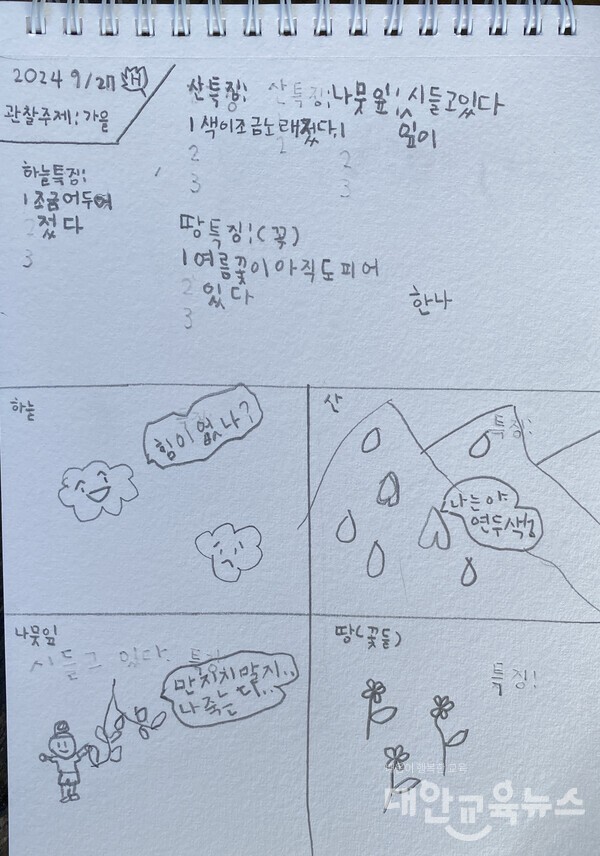 2024 9/27
관찰주제:가을
하늘특징:
1 조금어두어
2 졌다
3
산특징: 산특징:
1 색이조금노래졌다.
2 2
3
나뭇잎: 시들고있다
1 잎이
2
3
땅특징:(꽃)
1 여름꽃이아직도피어
2 있다
3
한나
하늘
힘이없나?
산
특징:
나는야
연두색!
나뭇잎
시들고 있다. 특징
만지지말지..
나죽는다..
땅(꽃들)
특징!
행복한 교육
대안교육뉴스